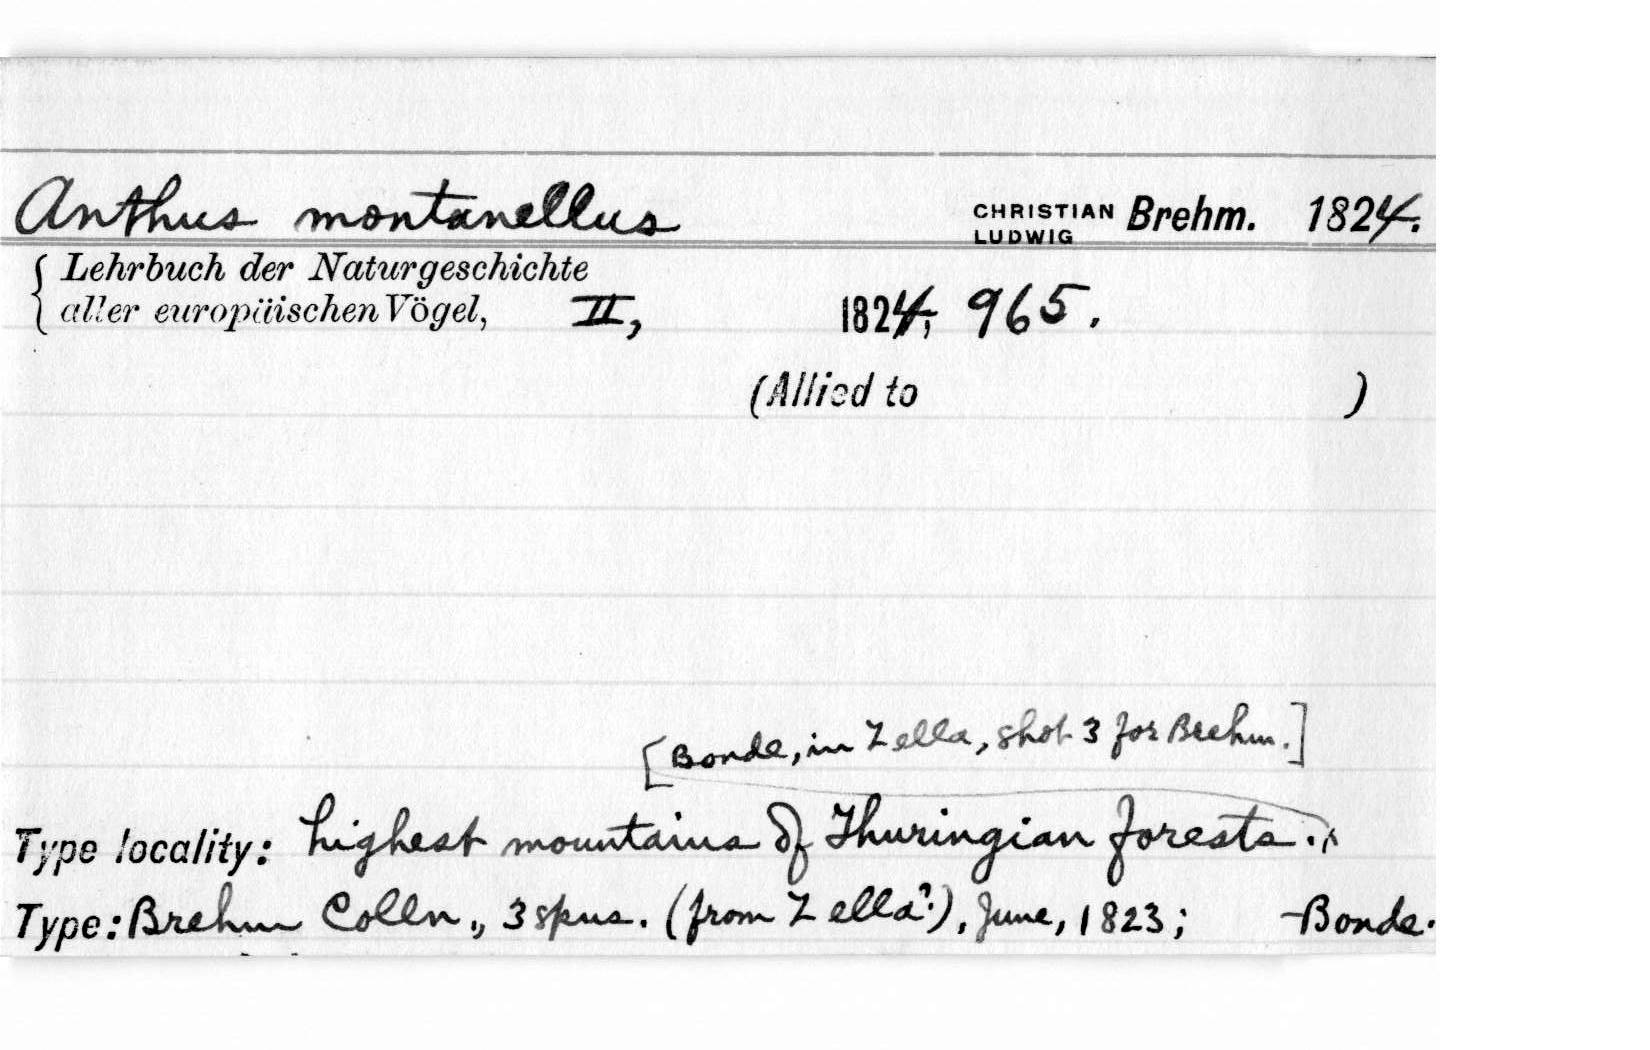 Anthus montanellus CHRISTIAN LUDWIG Brehm. 1824.
Lehrbuch der Naturgeschichte
aller europäischen Vögel, II, 1824, 965.
(Allied to )
[Bonde, in Zella, shot 3 for Brehm.]
Type locality: highest mountains of Thuringian forests.
Type: Brehm Colln., 3 spns. (from Zella?), June, 1823; -Bonde.